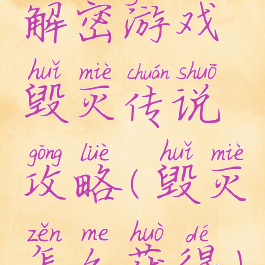 解密游戏
huǐ miè chuán shuō
毁灭传说
gōng lüè huǐ miè
攻略(毁灭
zěn me huò dé
怎么获得)